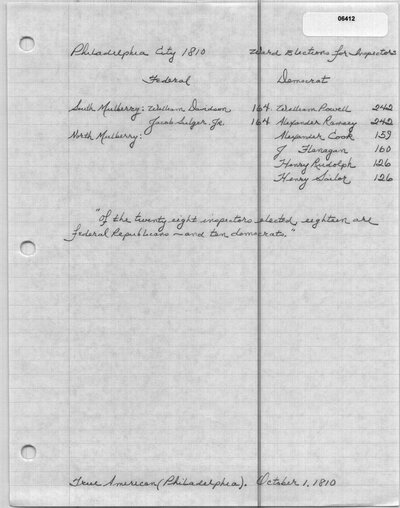 06412
Philadelphia City 1810 Ward Elections for Inspectors
Federal Democrat
South Mulberry: William Davidson 164 William Powell 242
Jacob Sulger, Jr. 164 Alexander Ramsey 242
North Mulberry: Alexander Cook 159
J Flanagan 160
Henry Rudolph 126
Henry Sailor 126
"Of the twenty eight inspectors elected, eighteen are
federal Republicans – and ten democrats."
True American (Philadelphia). October 1, 1810